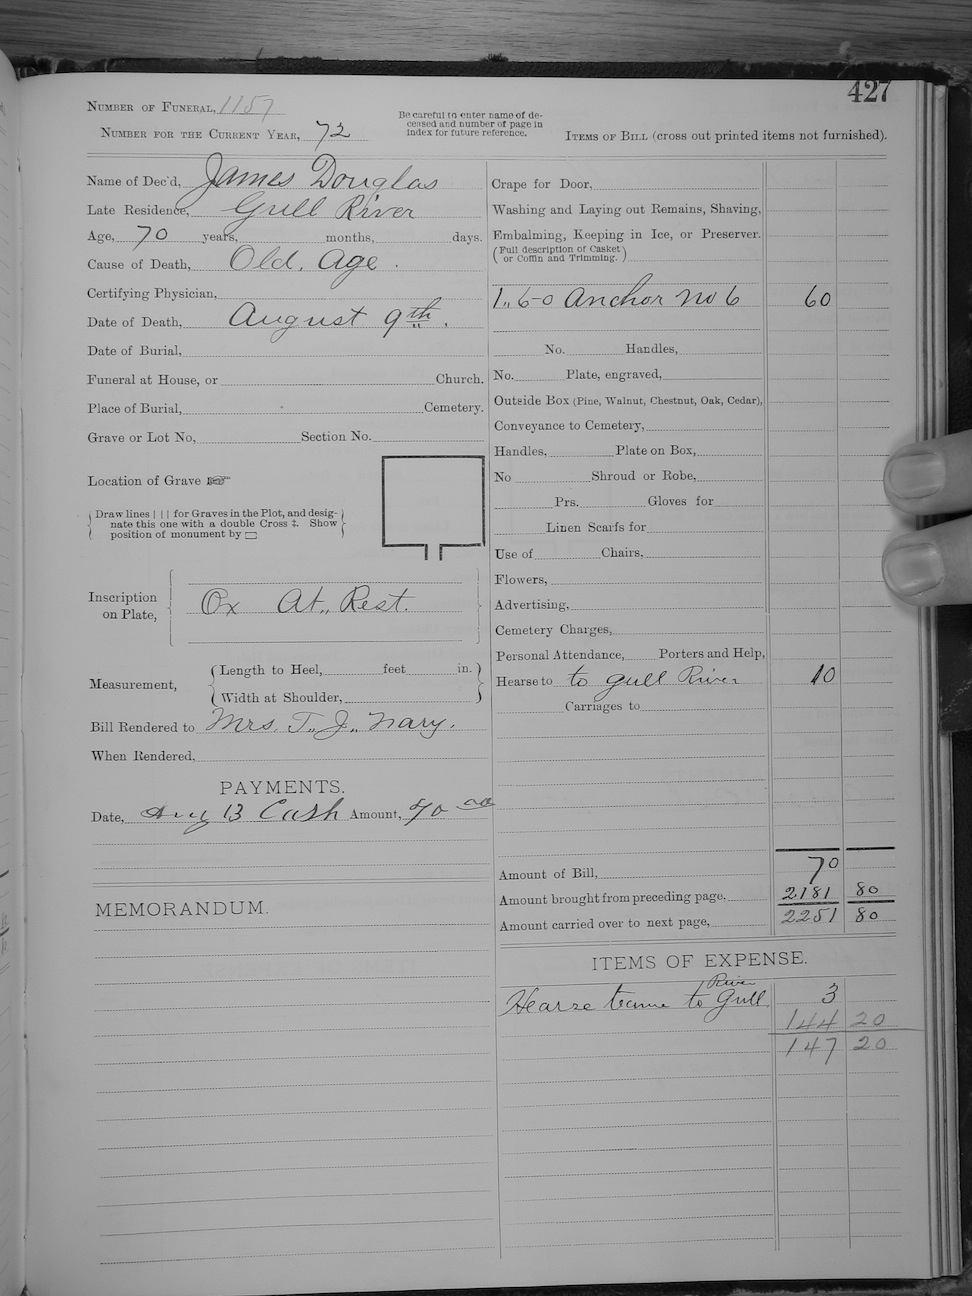 427
Number of Funeral, 1157
Number for the Current Year, 72
Be careful to enter name of de-
ceased and number of page in
index for future reference.
Items of Bill (cross out printed items not furnished).
Name of Dec'd, James Douglas
Late Residence, Gull River
Age, 70 years, months, days.
Cause of Death, Old, Age.
Certifying Physician,
Date of Death, August 9th.
Date of Burial,
Funeral at House, or Church.
Place of Burial, Cemetery.
Grave or Lot No, Section No.
Location of Grave ☞
Draw lines | | | for Graves in the Plot, and desig-
nate this one with a double Cross ‡. Show
position of monument by ▭
Inscription
on Plate,
Ox At,, Rest.
Measurement,
Length to Heel, feet in.
Width at Shoulder,
Bill Rendered to Mrs. T,, J,, Nary.
When Rendered,
PAYMENTS.
Date, Aug 13 Cash Amount, 70 00
MEMORANDUM.
Crape for Door,
Washing and Laying out Remains, Shaving,
Embalming, Keeping in Ice, or Preserver.
(Full description of Casket
or Coffin and Trimming.)
1,, 6-0 Anchor no 6 60
No. Handles,
No. Plate, engraved,
Outside Box (Pine, Walnut, Chestnut, Oak, Cedar),
Conveyance to Cemetery,
Handles, Plate on Box,
No Shroud or Robe,
Prs. Gloves for
Linen Scarfs for
Use of Chairs,
Flowers,
Advertising,
Cemetery Charges,
Personal Attendance, Porters and Help,
Hearse to to gull River 10
Carriages to
Amount of Bill, 70
Amount brought from preceding page, 2181 80
Amount carried over to next page, 2251 80
ITEMS OF EXPENSE.
River
Hearse teame to Gull 3
144 20
147 20